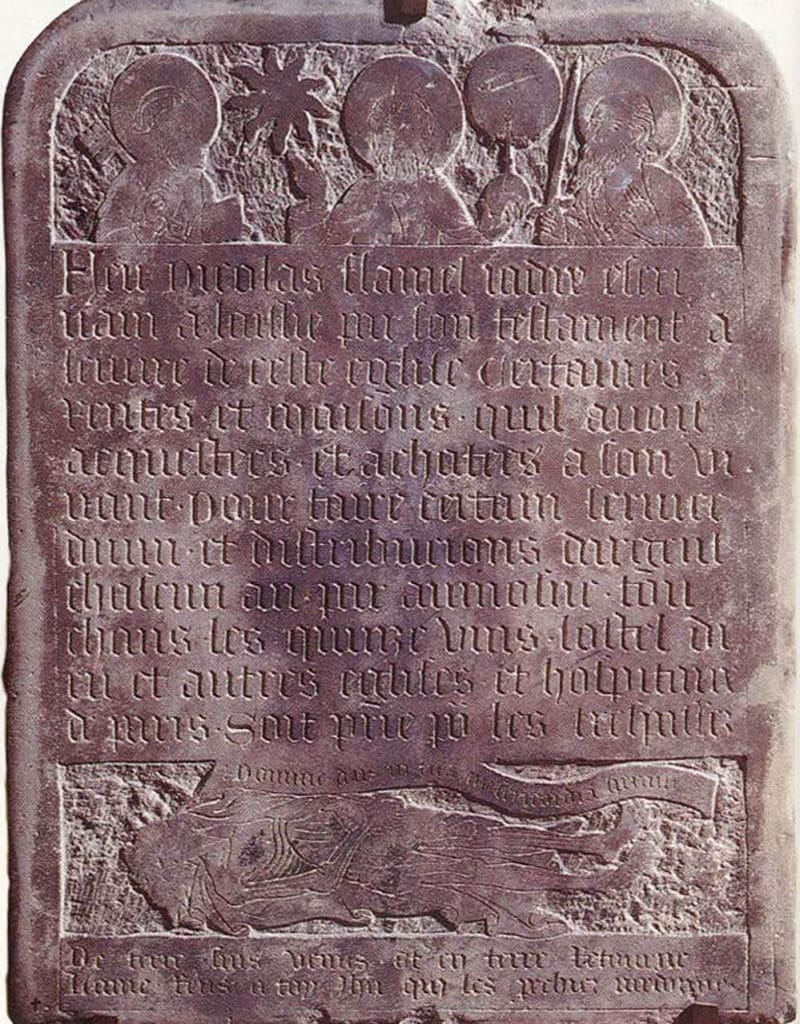 Feu nicolas flamel iadis escri
uain a laissie par son testament a
leuure de ceste eglise certaines
rentes et maisons · quil auoit
acquestees · et achatees a son vi
uant · pour faire certain seruice
diuin · et distribucions dargent
chascun an · par aumosne · tou
chans · les quinze vins · lostel di
eu et autres eglises et hospitaux
de paris · Soit prie po les trespassez
Domine deus in tua misericordia speraui
De terre suis venus et en terre retourne
Lame rens a toy Jhu qui les pechiez pardonne